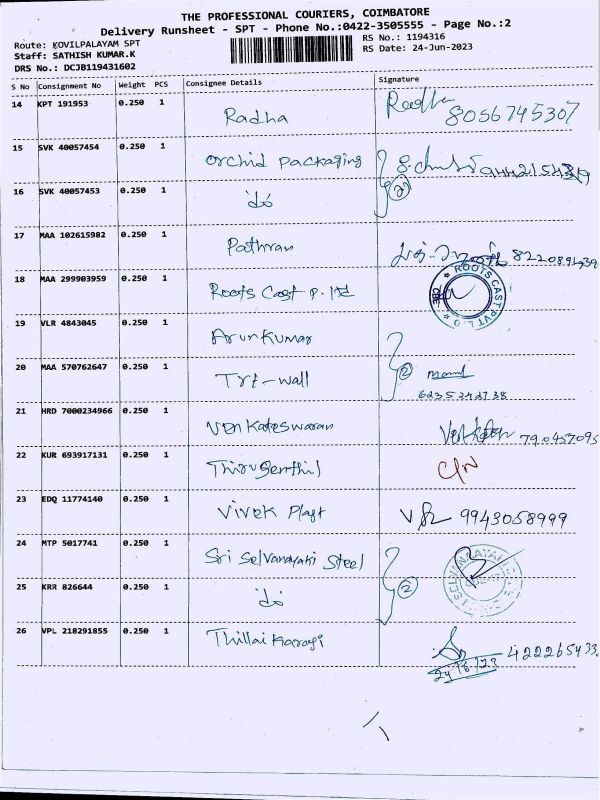 THE PROFESSIONAL COURIERS, COIMBATORE
Delivery Runsheet - SPT - Phone No.:0422-3505555 - Page No.:2
Route: KOVILPALAYAM SPT
Staff: SATHISH KUMAR.K
DRS No.: DCJB119431602
RS No.: 1194316
RS Date: 24-Jun-2023
S No Consignment No Weight PCS Consignee Details Signature
14 KPT 191953 0.250 1 Radha Radha 8056745307
15 SVK 40057454 0.250 1 Orchid Packaging
16 SVK 40057453 0.250 1 do (2)
17 MAA 102615982 0.250 1 Pathman
18 MAA 299903959 0.250 1 Roots Cast P. ltd ROOTS CAST PVT LTD
19 VLR 4843045 0.250 1 Arunkumar
20 MAA 570762647 0.250 1 Tri-wall (2)
21 HRD 7000234966 0.250 1 Venkateswaran
22 KUR 693917131 0.250 1 Thirusenthil
23 EDQ 11774140 0.250 1 Vivek Plast 9943058999
24 MTP 5017741 0.250 1 Sri Selvanayaki Steel
25 KRR 826644 0.250 1 do (2)
26 VPL 218291855 0.250 1 Thillai